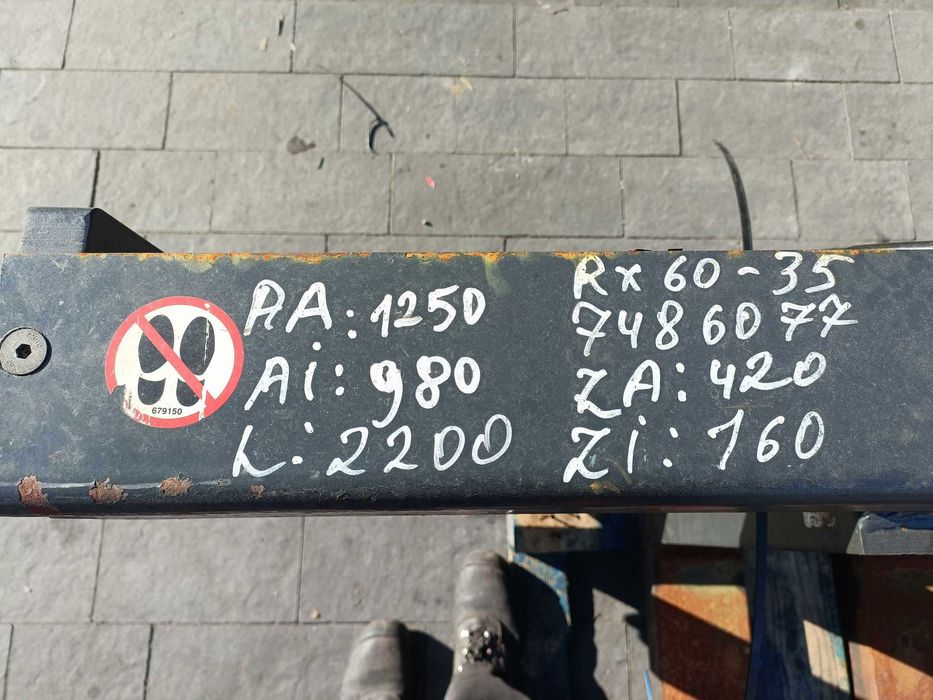 679150
AA: 1250
Ai: 980
L: 2200
Rx60-35
7486077
ZA: 420
Zi: 160